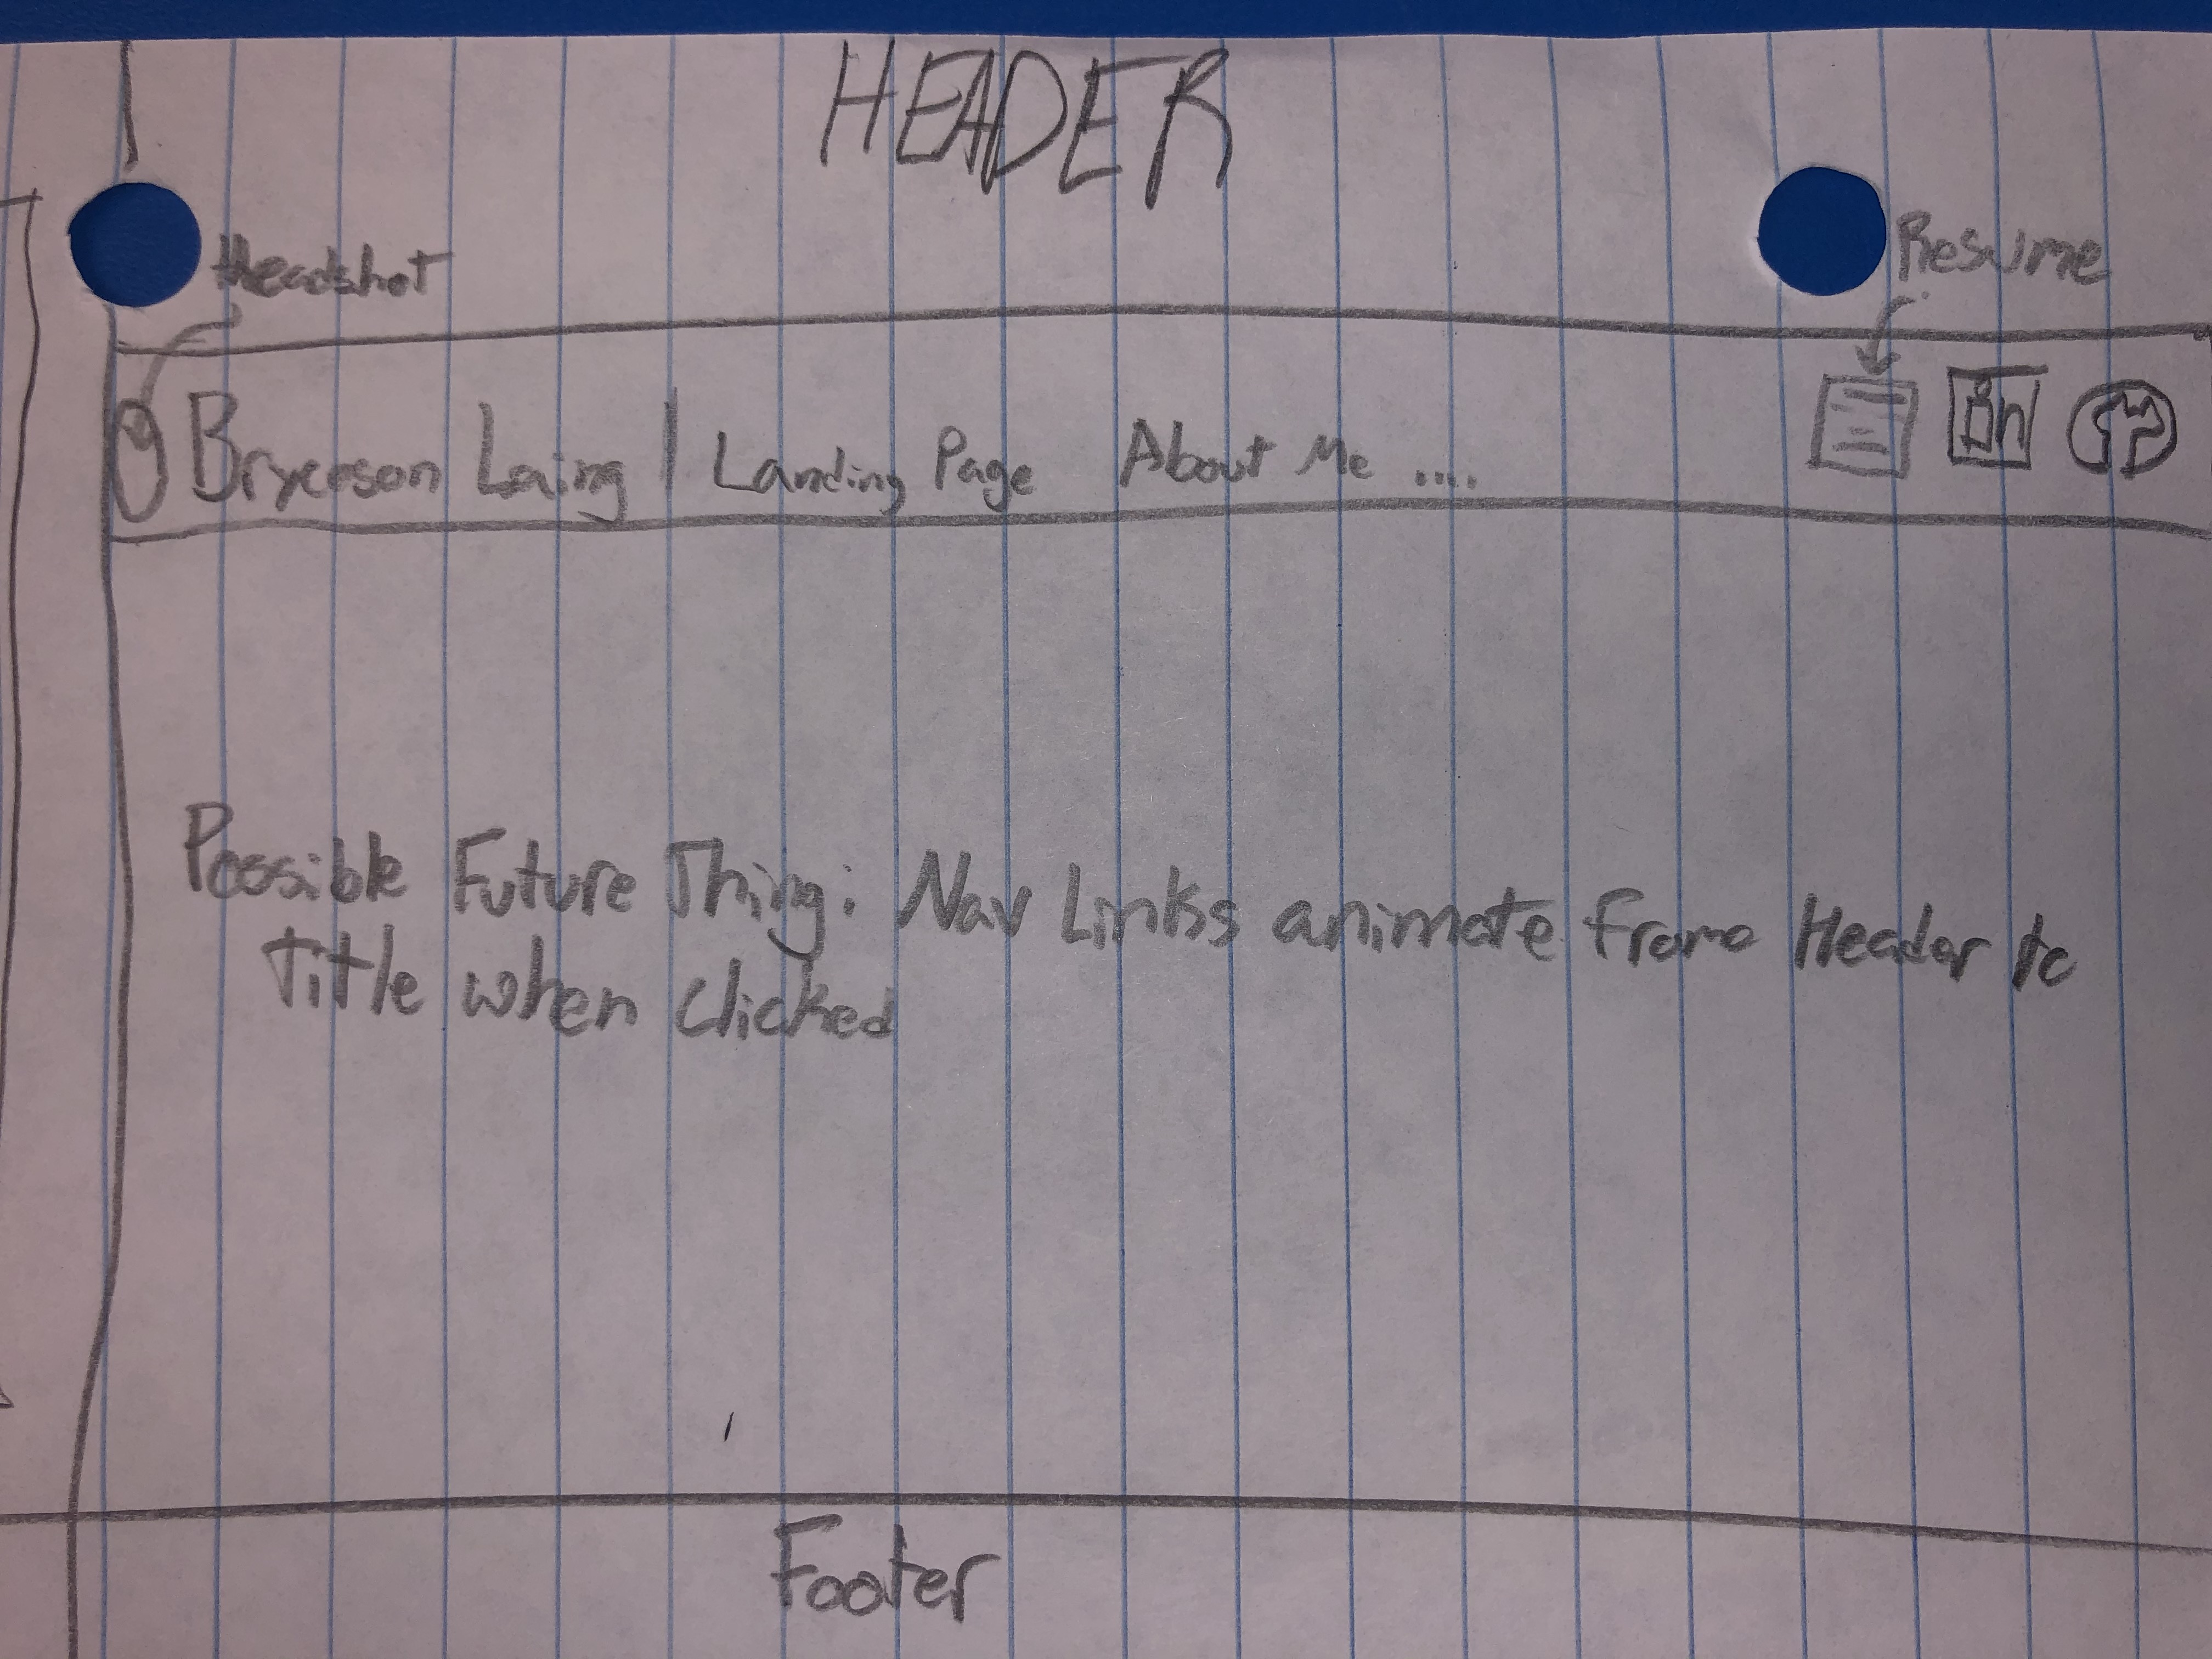 HEADER
Headshot
Resume
Bryceson Laing | Landing Page About Me ....
in
Possible Future Thing: Nav Links animate from Header to
Title when clicked
Footer